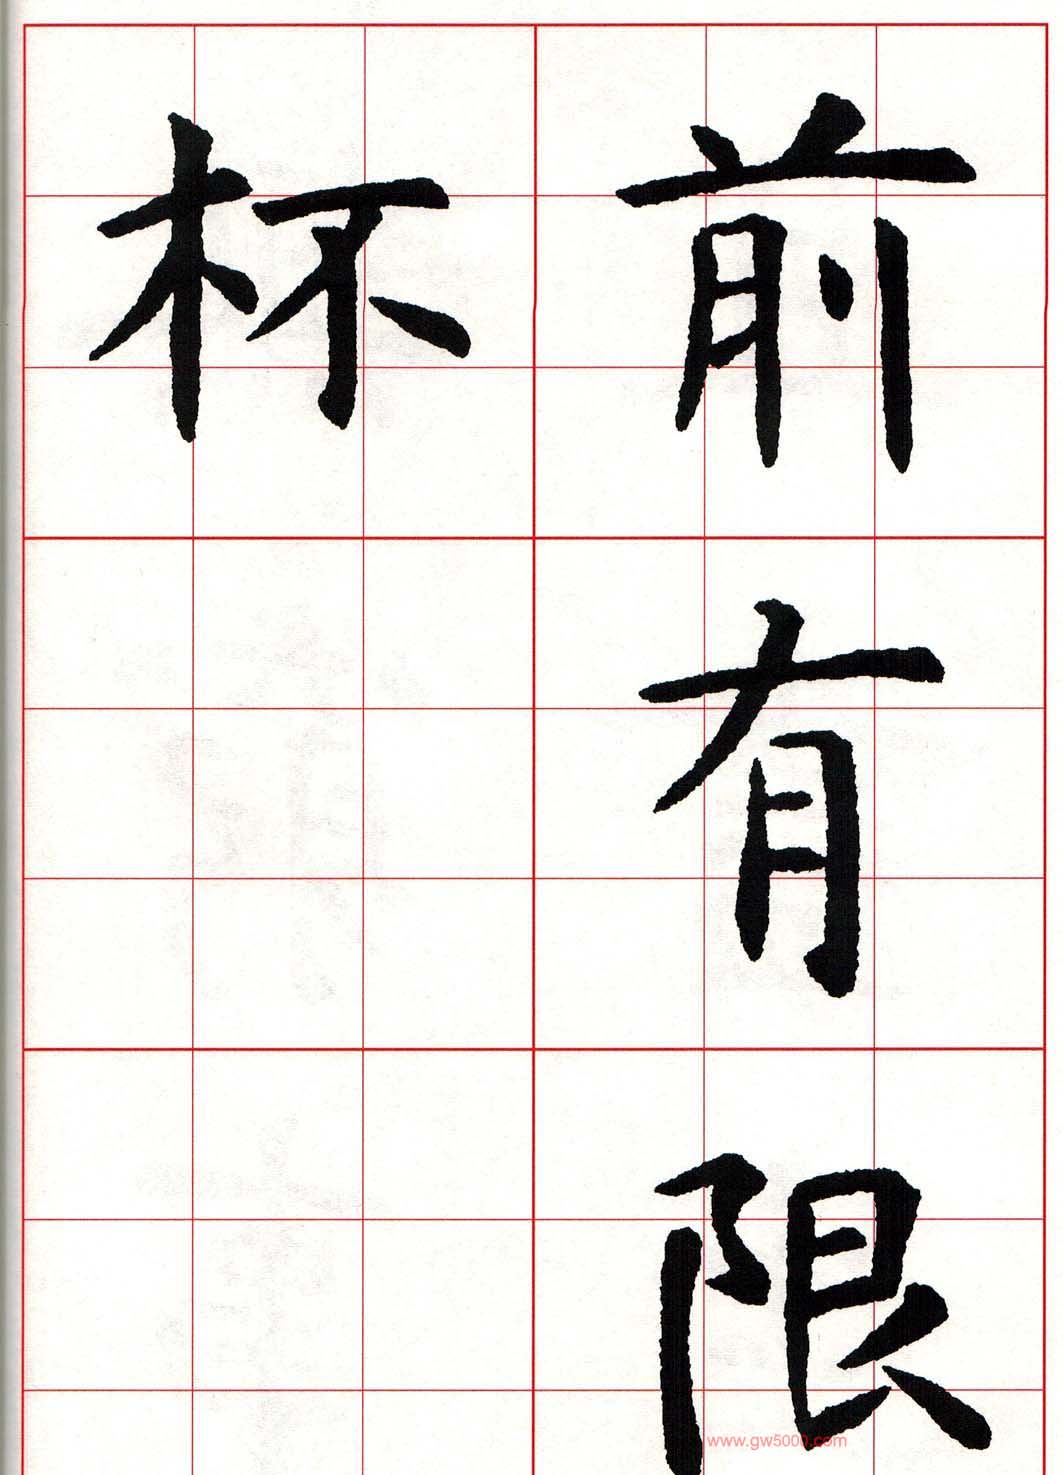 前有限
杯
www.gw5000.com